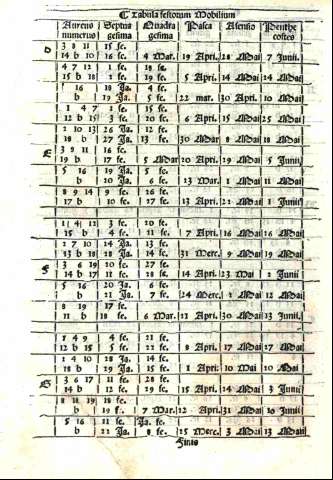 Tabula festorum Mobilium
Aureus Septua Quadra Pasca Ascensio Penthe
numerus gesima gesima costes
3 8 11 15 fe.
D 14 b 10 16 fe. 4 Mar. 19 Apri. 28 Mai 7 Junii.
4 7 12 1 fe. 18 fe.
15 b 18 2 fe. 19 fe. 5 Apri. 14 Mai 24 Mai
16 18 Ja. 4 fe.
b 19 Ja. 5 fe. 22 mar. 30 Apri. 10 Mai
1 4 7 2 fe. 15 fe.
12 b 15 3 fe. 20 fe. 6 Apri. 15 Mai 25 Mai
2 10 13 26 Ja. 12 fe.
18 b 27 Ja. 13 fe. 30 Mar 8 Mai 18 Mai
E 3 9 11 16 fe.
19 b 17 fe. 5 Mar 20 Apri. 29 Mai 5 Junii
5 16 19 Ja. 5 fe.
b 20 Ja. 6 fe. 13 Mar. 1 Mai 11 Mai
8 9 14 9 fe. 26 fe.
17 b 10 fe. 27 fe. 13 Apri. 22 Mai 1 Junii
1 4 12 3 fe. 20 fe.
15 b 4 fe. 11 fe. 7 Apri. 16 Mai 26 Mai
2 7 10 24 Ja. 13 fe.
13 b 18 28 Ja. 14 fe. 31 Merc. 9 Mai 19 Mai
F 3 6 19 10 fe. 27 fe.
14 b 17 11 fe. 28 fe. 14 Apri. 23 Mai 2 Junii
5 16 20 Ja. 6 fe.
b 21 Ja. 7 fe. 24 Merc. 2 Mai 12 Mai
8 19 17 fe.
11 b 18 fe. 6 Mar. 21 Apri. 30 Mai 13 Junii.
1 4 9 4 fe. 21 fe.
12 b 15 5 fe. 22 fe. 8 Apri. 17 Mai 27 Mai
2 4 10 28 Ja. 14 fe.
18 b 29 Ja. 15 fe. 1 Apri. 10 Mai 20 Mai
G 3 6 17 11 fe. 28 fe.
14 b 12 fe. 29 fe. 15 Apri. 24 Mai 3 Junii
8 11 19 18 fe.
b 19 f. 7 Mar. 22 Apri. 31 Mai 10 Junii
5 16 21 fe. Ja. fe.
b 22 Ja. 8 fe. 25 Merc. 3 Mai 13 Mai
Finis